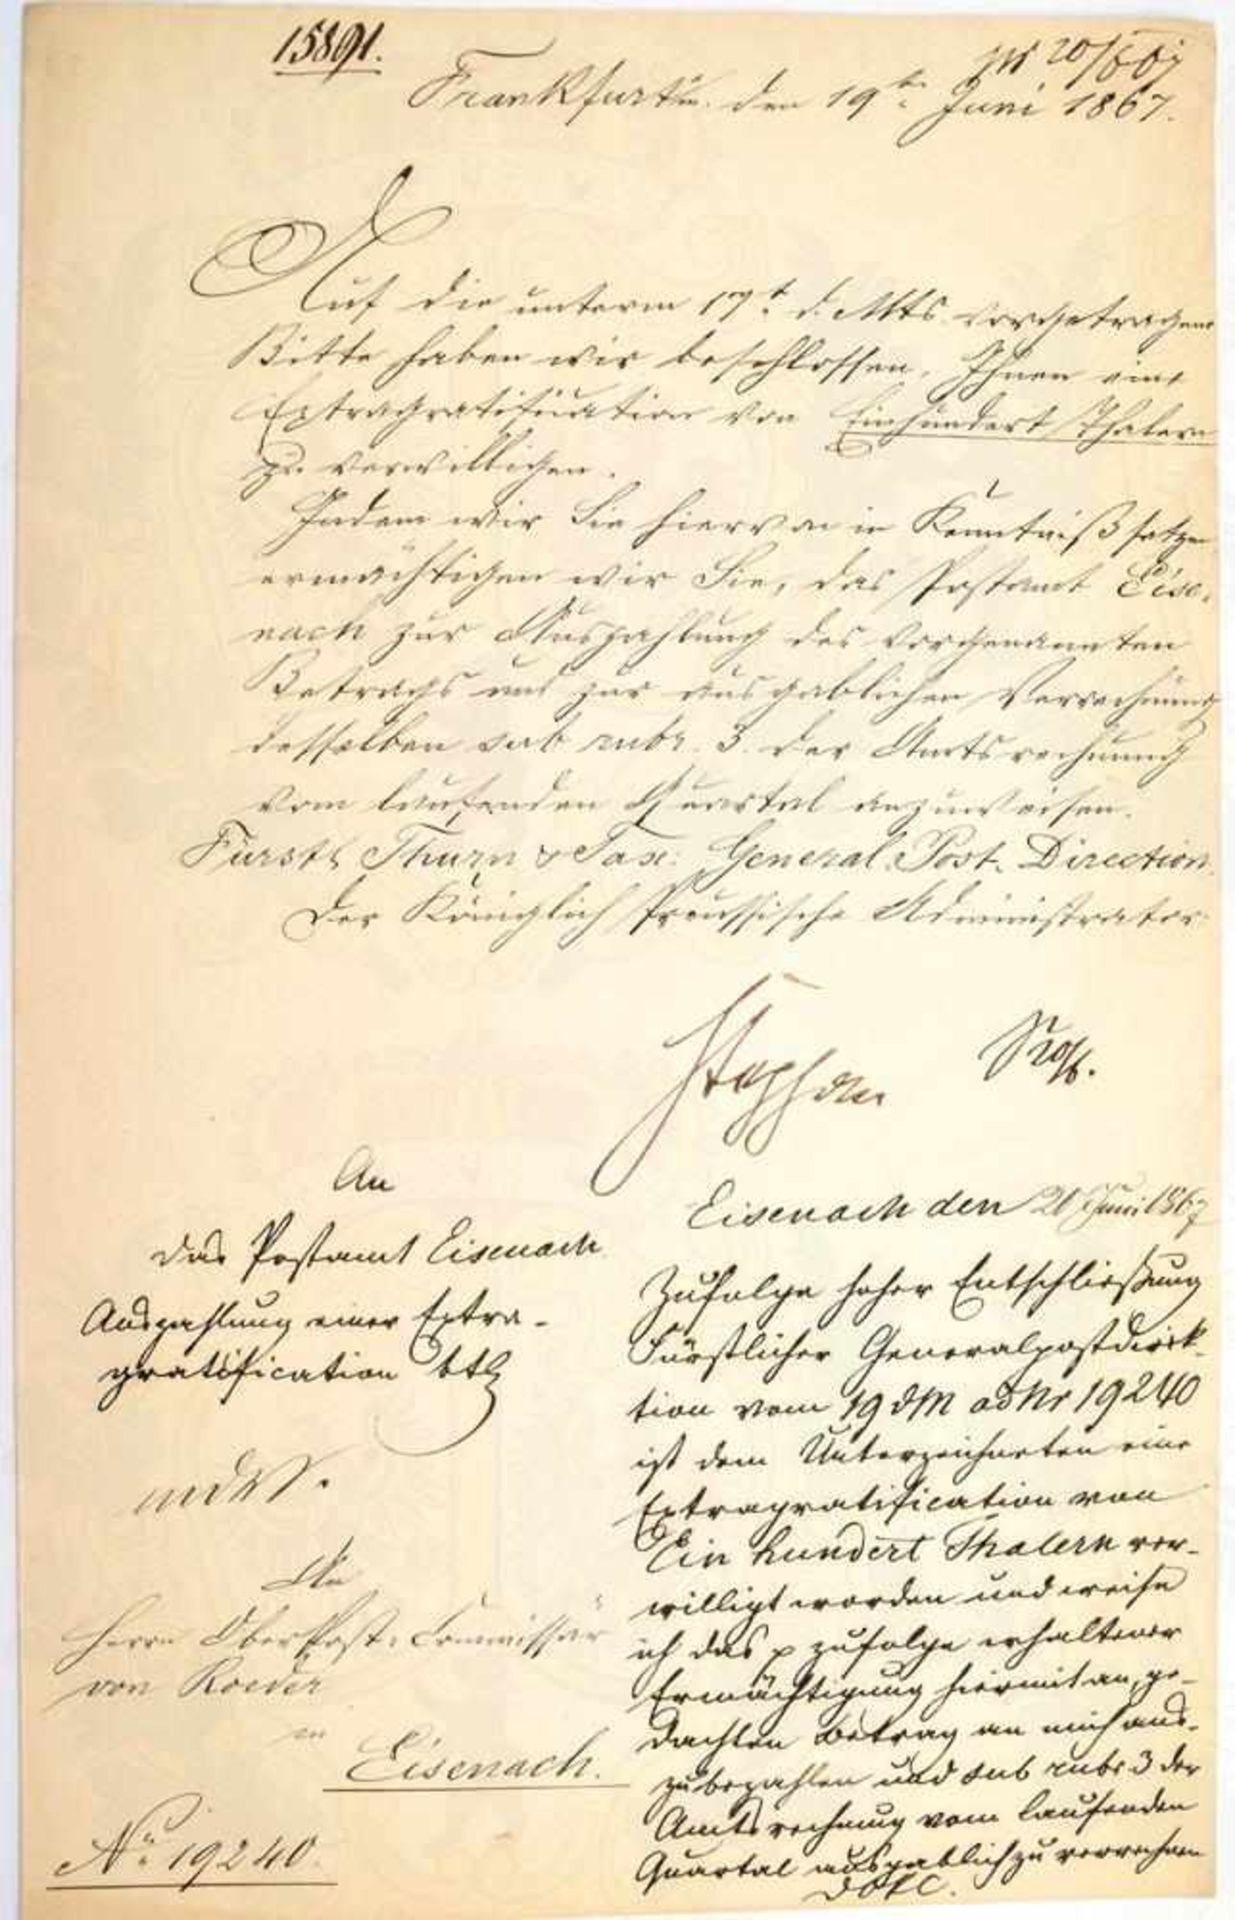 15891.
20/6 67
Frankfurt a/m. den 19ten Juni 1867.
Auf die unterm 17t. d. Mts. vorgetragene
Bitte haben wir beschlossen, Ihnen eine
Extragratification von Einhundert Thalern
zu verwilligen.
Indem wir Sie hiervon in Kenntniß setzen
ermächtigen wir Sie, das Postamt Eise-
nach zur Auszahlung des vorgenannten
Betrags und zur ausgablichen Verrechnung
desselben sub rubr. 3. der Amtsrechnung
vom laufenden Quartal anzuweisen.
Fürstl. Thurn & Tax. General-Post-Direction.
Der Königlich Preussische Administrator
Stephan
An
das Postamt Eisenach
Auszahlung einer Extra-
gratification btr
An
Herrn OberPost-Commissär
von Roeder
in
Eisenach.
No. 19240.
Eisenach den 20 Juni 1867
Zufolge hoher Entschließung
Fürstlicher Generalpostdirek-
tion vom 19 dM ad Nr 19240
ist dem Unterzeichneten eine
Extragratification von
Ein hundert Thalern ver-
willigt worden und weise
ich das p zufolge erhaltener
Ermächtigung hiermit an, ge-
dachten Betrag an mich aus-
zubezahlen und sub rubr 3 der
Amtsrechnung vom laufenden
Quartal ausgablich zu verrechnen